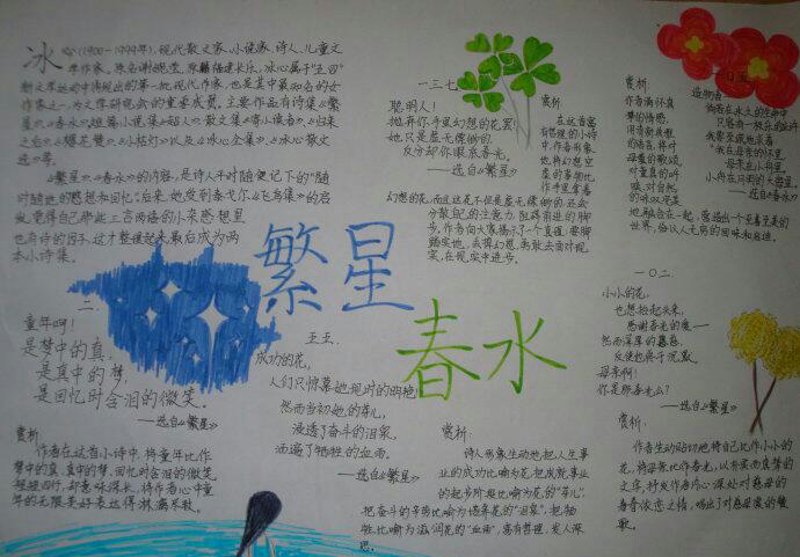 冰心(1900-1999年),现代散文家、小说家、诗人、儿童文
学作家。原名谢婉莹,原籍福建长乐,冰心属于“五四”
新文学运动中涌现出的第一批现代作家,也是其中最知名的女
作家之一,为文学研究会的重要成员。主要作品有诗集《繁
星》、《春水》,短篇小说集《超人》、散文集《寄小读者》、《归来
之后》、《樱花赞》、《小桔灯》以及《冰心全集》、《冰心散文
选》等。
《繁星》、《春水》的内容,是诗人平时随便记下的“随
时随地的感想和回忆”。后来,她受到泰戈尔《飞鸟集》的启
发,觉得自己那些三言两语的小杂感里
也有诗的因子,这才整理起来最后成为两
本小诗集。
繁星
春水
二
童年呵!
是梦中的真,
是真中的梦,
是回忆时含泪的微笑。
——选自《繁星》
赏析:
作者在这首小诗中,将童年比作
梦中的真,真中的梦,回忆时含泪的微笑
短短四行,却意味深长,将作者心中童
年的无限美好表达得淋漓尽致。
五五、
成功的花,
人们只惊慕她现时的明艳!
然而当初她的芽儿,
浸透了奋斗的泪泉,
洒遍了牺牲的血雨。
——选自《繁星》
赏析:
诗人形象生动地把人生事
业的成功比喻为花,把成就事业
的起步阶段比喻为花的“芽儿”,
把奋斗的辛劳比喻为浇年花的“泪泉”,把牺
牲比喻为滋润花的“血雨”,富有哲理,发人深
思。
一三七
聪明人!
抛弃你手里幻想的花罢!
她只是虚无缥缈的,
反分却你眼底春光。
——选自《繁星》
赏析:
在这首富
有哲理的小诗
中,作者形象
地将幻想空
虚的事物比
作手里拿着
幻想的花,而且这花不但是虚无缥缈的,还会
分散自己的注意力,阻碍前进的脚
步。作者向大家揭示了一个真理:要脚
踏实地,丢掉幻想,勇敢去面对现
实,在现实中进步。
一〇五、
造物者——
倘若在永久的生命中
只容有一极乐的应许
我要至诚地求着:
“我在母亲的怀里,
母亲在小舟里,
小舟在月明的大海里。”
——选自《春水》
赏析:
作者满怀真
挚的情感,
用清新典雅
的语言,将对
母爱的歌颂,
对童真的呼
唤,对自然
的咏叹完美
地融合在一起,营造出一个至善至美的
世界,给以人无穷的回味和启迪。
一〇二
小小的花,
也想抬起头来,
感谢春光的爱——
然而深厚的慈恩,
反使她终于沉默。
母亲啊!
你是那春光么?
——选自《繁星》
赏析:
作者生动贴切地将自己比作小小的
花,将母亲比作春光,以朴实而真挚的
文字,抒发作者内心深处对慈母的
眷眷浓恋之情,唱出了对慈母爱的颂
歌。